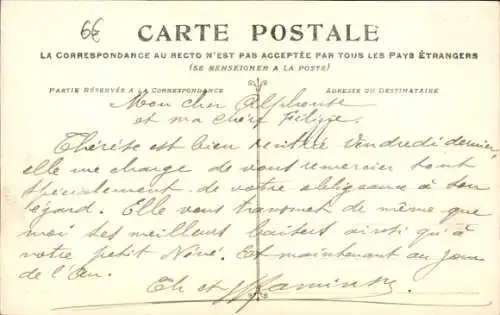 6€
CARTE POSTALE
LA CORRESPONDANCE AU RECTO N'EST PAS ACCEPTÉE PAR TOUS LES PAYS ÉTRANGERS
(SE RENSEIGNER A LA POSTE)
PARTIE RÉSERVÉE A LA CORRESPONDANCE
ADRESSE DU DESTINATAIRE
Mon cher Alphonse
et ma chère Félicie.
Thérèse est bien rentrée Vendredi dernier,
elle me charge de vous remercier tout
spécialement de votre obligeance à son
égard. Elle vous transmet de même que
moi ses meilleurs baisers ainsi qu'à
votre petit Néné. Et maintenant au jour
de l'An.
Th et